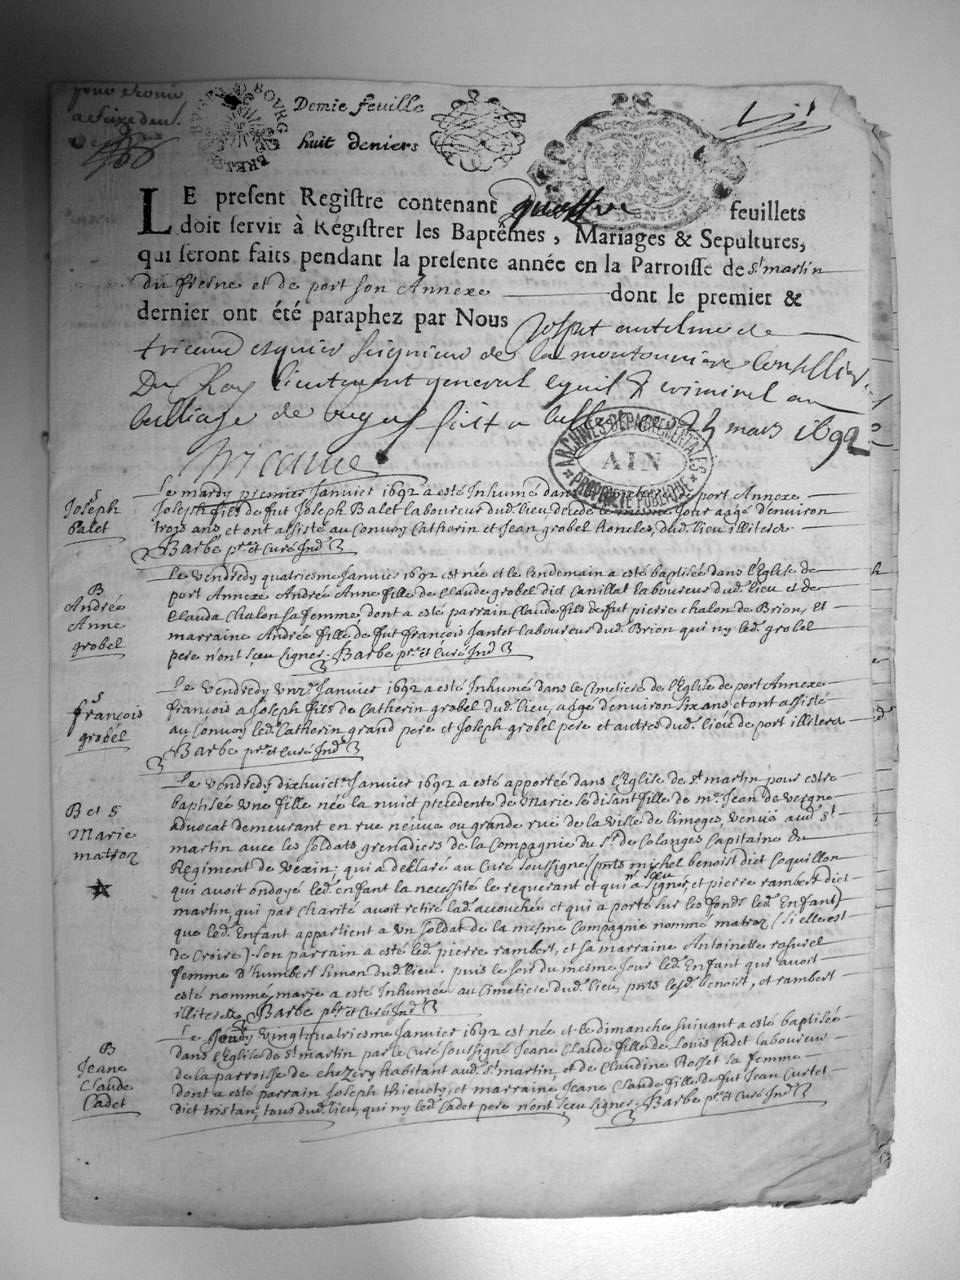 pour chacune
Demie feuille
huit deniers
BOURG BRESSE
LE present Registre contenant quattre feuillets
doit servir à Régistrer les Baptêmes, Mariages & Sepultures,
qui seront faits pendant la presente année en la Parroisse de st martin
du fresne et de port son Annexe dont le premier &
dernier ont été paraphez par Nous Joseph antelme de
tricaud esquier seigneur de la moutonniere Conseillier
Du Roy lieutenant general civil & criminel au
bailliage de bugey fait a belley ce 25 mars 1692
Tricaud
ARCHIVES DÉPARTEMENTALES
AIN
PROPRIÉTÉ PUBLIQUE
S
Joseph
Balet
Le mardy premier Janvier 1692 a esté Inhumé dans port Annexe
Joseph fils de fut Joseph Balet Laboureur dud. lieu decedé le Jour aagé d'environ
trois ans et ont assisté au Convoy Catherin et Jean grobel honcles, dud. lieu illiteres
Barbe ptre et Curé Indi
B
Andrée
Anne
grobel
Le Vendredy quatriesme Janvier 1692 est née et le lendemain a esté baptisée dans l'Eglise de
port Annexe Andrée Anne fille de Claude grobel dict Canillat laboureur dud. lieu et de
Clauda Chalon sa femme, dont a esté parrain Claude fils de fut pierre chalon de Brion, et
marraine Andrée fille de fut françois Jantet laboureur dud. Brion qui ny led. grobel
pere n'ont sceu signer. Barbe ptre et Curé Indi
S
françois
grobel
Le Vendredy unze Janvier 1692 a esté Inhumé dans le Cimetiere de l'Eglise de port Annexe
françois a Joseph fils de Catherin grobel dud. lieu, aagé d'environ six ans et ont assisté
au Convoy led. Catherin grand pere et Joseph grobel pere et autres dud. lieu de port illiteres
Barbe ptre et Curé Indi
B et S
Marie
matroz
Le Vendredy dixhuict Janvier 1692 a esté apportée dans l'Eglise de st martin pour estre
baptisée une fille née la nuict precedente de Marie se disant fille de mr. Jean de vergne
advocat demeurant en rue neuve ou grande rue de la ville de limoges, venue aud. st
martin avec les soldats grenadiers de la Compagnie du Sr. de Colanges Capitaine du
Regiment de Vexin; qui a declaré au Curé soussigné (pnts michel benoist dict Coquillon
qui avoit ondoyé led. enfant la necessité le requerant et qui n'a sceu signer, et pierre rambert dict
martin, qui par charité avoit retiré lad. accouchée et qui a porté sur les fonds led. Enfant)
que led. Enfant appartient a un soldat de la mesme Compagnie nommé matroz (si elle est
de Croire) son parrain a esté led. pierre rambert, et sa marraine Antoinette
femme d'humbert Simon dud. lieu. puis le soir du mesme Jour led. Enfant qui avoit
esté nommé, marie a esté Inhumée au Cimetiere dud. lieu, pnts lesd. benoist, et rambert
illiteres. Barbe pbr et Curé Indi
B
Jeane
Claude
Cadet
Le Jeudy vingtquatriesme Janvier 1692 est née et le dimanche suivant a esté baptisée
dans l'Eglise de st martin par le Curé soussigné Jeane Claude fille de Louis Cadet laboureur
de la parroisse de chezery habitant aud. st martin, et de Claudine Rosset sa femme
dont a esté parrain Joseph thievoty, et marraine Jeane Claude fille de fut Jean Curtet
dict tristan, tous dud. lieu, qui ny led. Cadet pere n'ont sceu signer. Barbe ptre et Curé Indi